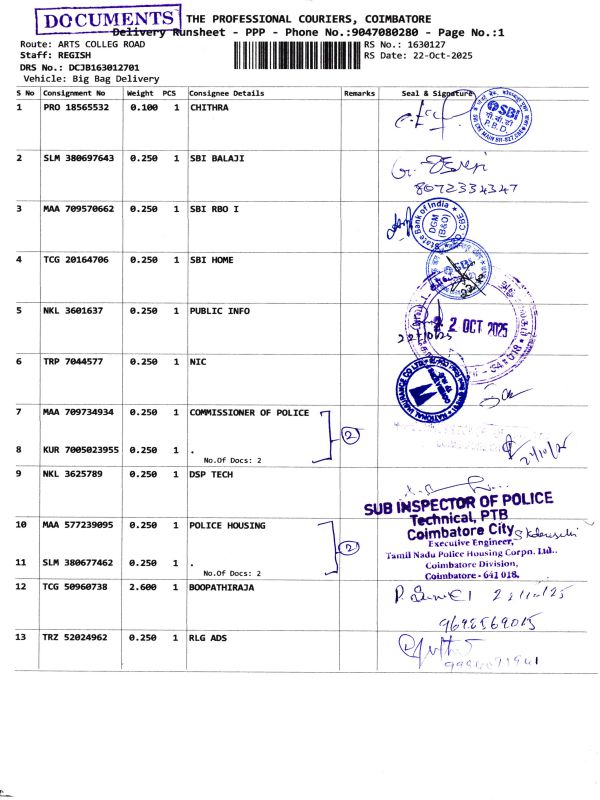 DOCUMENTS
THE PROFESSIONAL COURIERS, COIMBATORE
Delivery Runsheet - PPP - Phone No.:9047080280 - Page No.:1
Route: ARTS COLLEG ROAD
RS No.: 1630127
Staff: REGISH
RS Date: 22-Oct-2025
DRS No.: DCJB163012701
Vehicle: Big Bag Delivery
S No Consignment No Weight PCS Consignee Details Remarks Seal & Signature
1 PRO 18565532 0.100 1 CHITHRA
SBI
2 SLM 380697643 0.250 1 SBI BALAJI
8072334347
3 MAA 709570662 0.250 1 SBI RBO I
State Bank of India
DGM
(B&O)
4 TCG 20164706 0.250 1 SBI HOME
SBI
5 NKL 3601637 0.250 1 PUBLIC INFO
2 2 OCT 2025
22/10/25
6 TRP 7044577 0.250 1 NIC
NATIONAL INSURANCE CO LTD
7 MAA 709734934 0.250 1 COMMISSIONER OF POLICE
2
8 KUR 7005023955 0.250 1 .
No.Of Docs: 2
9 NKL 3625789 0.250 1 DSP TECH
SUB INSPECTOR OF POLICE
Technical, PTB
Coimbatore City
10 MAA 577239095 0.250 1 POLICE HOUSING
2
Executive Engineer,
Tamil Nadu Police Housing Corpn. Ltd..
Coimbatore Division,
Coimbatore - 641 018.
11 SLM 380677462 0.250 1 .
No.Of Docs: 2
12 TCG 50960738 2.600 1 BOOPATHIRAJA
13 TRZ 52024962 0.250 1 RLG ADS